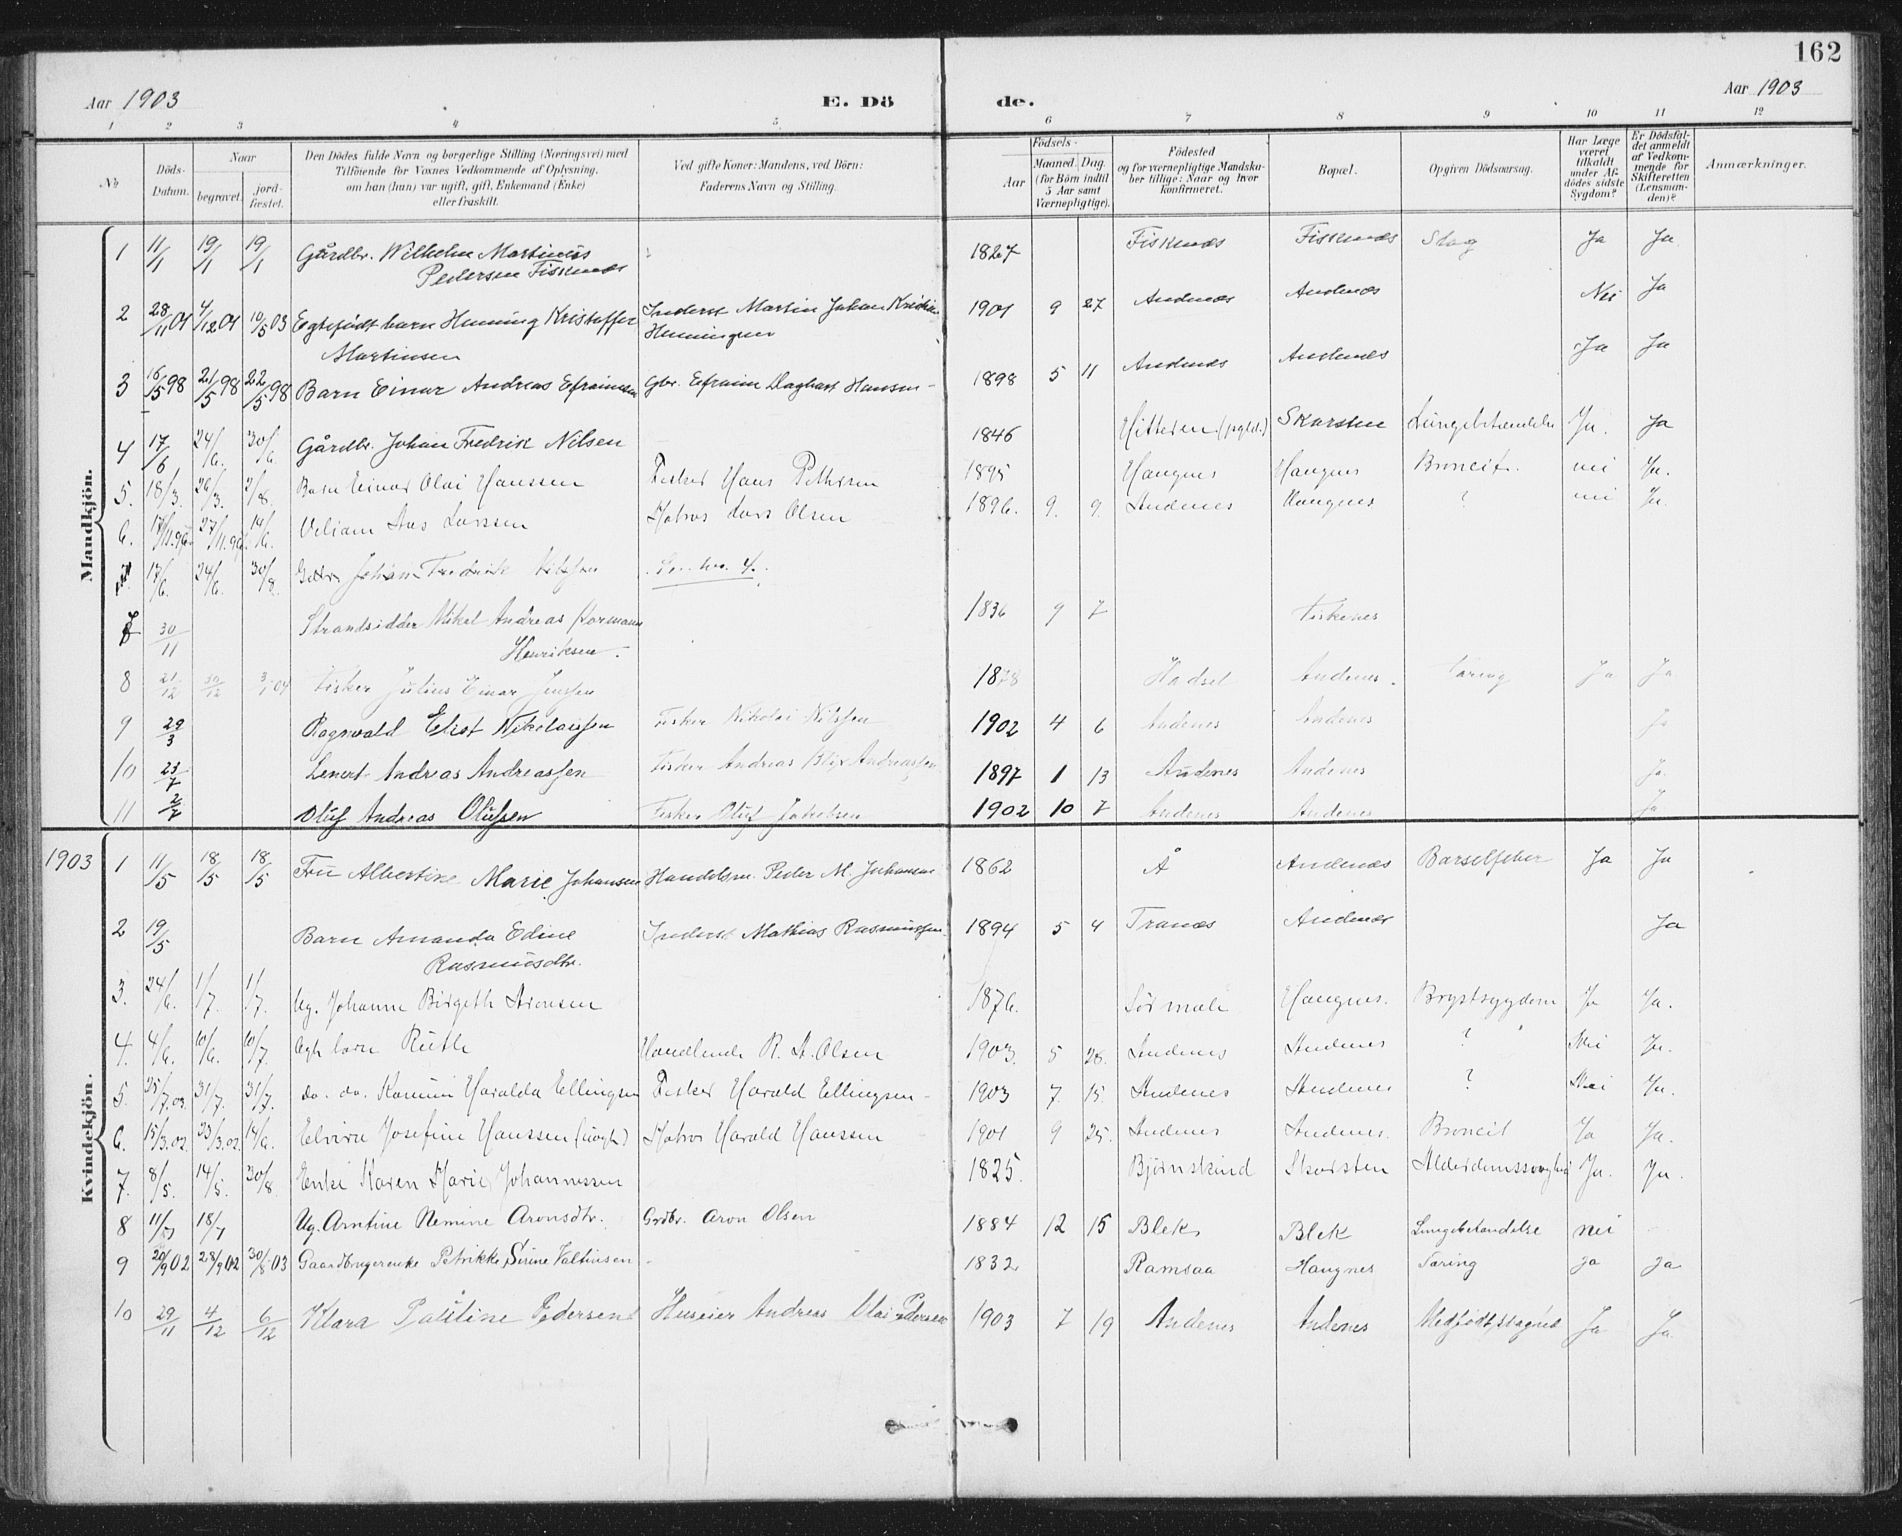 162
Aar 1903 E. Dö de. Aar 1903
1 2 3 4 5 6 7 8 9 10 11 12
No
Döds-Datum.
Naar begravet. jordfæstet.
Den Dödes fulde Navn og borgerlige Stilling (Næringsvei) med
Tilföiende for Voxnes Vedkommende af Oplysning,
om han (hun) var ugift, gift, Enkemand (Enke)
eller fraskilt.
Ved gifte Koner: Mandens, ved Börn:
Faderens Navn og Stilling.
Födsels-
Aar
Maaned. Dag.
(for Börn indtil
5 Aar samt
Værnepligtige).
Födested
og for værnepligtige Mandskaber tillige: Naar og hvor
konfirmeret.
Bopæl.
Opgiven Dödsaarsag.
Har Læge
været
tilkaldt
under Afdödes sidste
Sygdom?
Er Dödsfaldet anmeldt
af Vedkommende for
Skifteretten
(Lensmanden)?
Anmærkninger.
Mandkjön.
1 11/1 19/1 19/1 Gårdbr. Wilhelm Martinus 1827 Fiskenæs Fiskenæs Slag Ja Ja
Pedersen Fiskenæs
2 28/11 01 4/12 01 10/5 03 Egtefödt barn Henning Kristoffer Inderst Martin Johan Kristian 1901 9 27 Andenæs Andenæs Nei Ja
Martinsen Henningsen
3 16/5 98 21/5 98 22/5 98 Barn Einar Andreas Efraimsen Gbr. Efraim Daghart Hansen 1898 5 11 Andenæs Andenæs Ja Ja
4 17/6 24/6. 30/6. Gårdbr. Johan Fredrik Nilsen 1846 Hitteren (pgld.) Skarsten Lungebetændelse Ja. Ja
5. 18/3. 26/3. 2/8. Barn Einar Olai Hanssen Fisker Hans Pettersen 1895 Haugnes Haugnes Broncit. nei Ja.
6. 17/11.96. 27/11.96. 14/6. Viliam Aas Larssen Matros Lars Olsen 1896. 9. 9. Andenes Haugnes ? nei Ja.
17/6. 24/6. 30/8. Gdbr. Johan Fredrik Nilssen Se no. 4.
7 30/11 Strandsidder Mikal Andreas Normann 1836 9 7 Fiskenes
Henriksen.
8 21/12 30/12 3/1 04 Fisker Julius Einar Jenssen 1878 Hadsel Andenes. Tæring Ja Ja
9 29/3 Ragnvald Elist Nikolaissen Fisker Nikolai Nilssen 1902 4 6 Andenes Andenes Ja
10 23/7 Lenert Andreas Andreassen Fisker Andreas Blix Andreassen 1897 1 13 Andenes Andenes Ja.
11 2/7 Oluf Andreas Olufsen Fisker Oluf Jakobsen 1902 10 7 Andenes Andenes Ja
Kvindekjön.
1903 1 11/5 18/5 18/5 Fru Albertine Marie Johansen Handelsm. Peder M. Johansen 1862 Å Andenæs Barselfeber Ja Ja
2 19/5 Barn Amanda Edine Inderst Mathias Rasmussen 1894 5 4 Tranøs Andenæs Ja
Rasmusdtr.
3. 24/6. 1/7. 1/7. Ug. Johanne Birgeth Aronsen 1876. Sörmele Haugnes. Brystsygdom Ja Ja.
4. 4/6. 10/6. 10/7. Ægte barn Ruth Handlende R. A. Olsen 1903. 5 28. Andenes Andenes ? Nei Ja.
5. 25/7.03. 31/7. 31/7. do. do. Karmin Haralda Ellingsen Fisker Harald Ellingsen 1903 7. 15. Andenes Andenes ? Nei Ja.
6. 15/3.02. 23/3.02. 14/6. Elvira Josefine Hanssen (uægte) Matros Harald Hanssen 1901 9 25. Andenes Andenes. Broncit Ja Ja.
7. 8/5. 14/5. 30/8. Enke Karen Marie Johannessen 1825. Björnskind Skarsten Alderdomssvaghed Ja. Ja.
8 11/7 18/7 Ug. Arntine Nemine Aronsdtr. Grdbr. Aron Olsen 1884 12 15 Blek Blek Lungebetændelse nei
9 20/9 02 28/9 02 30/8 03 Gaardbrugerenke Petrikke Serine Valtinsen 1832 Ramsaa Haugnes Tæring ja ja
10 29/11 4/12 6/12 Klara Pauline Pedersen Huseier Andreas Olai Pedersen 1903 7 19 Andenes Andenes Medfödt svaghed Ja Ja